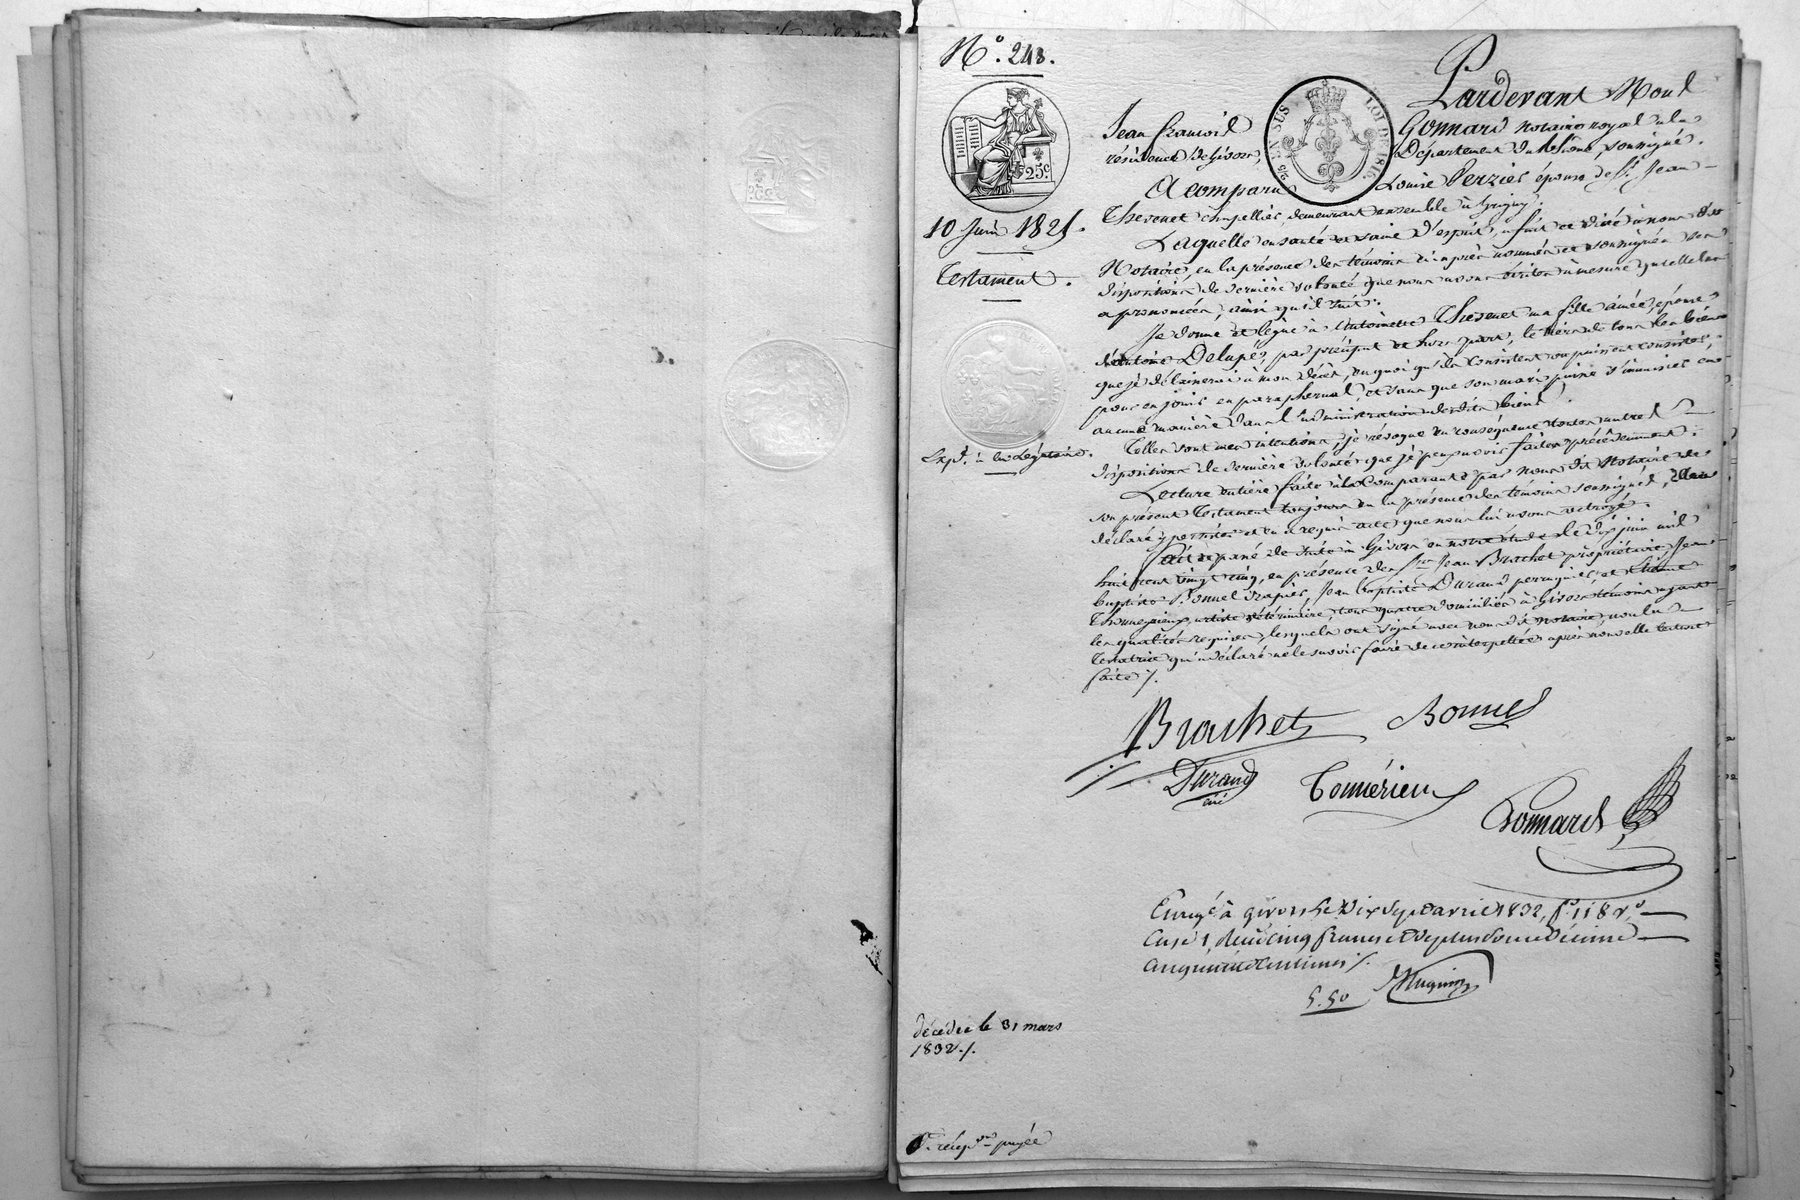 N.º 243.
25ᶜ
10 Juin 1825.
Testament.
Exp.ᵒⁿ à la Légataire.
décédée le 31 mars
1832./.
payée
EN SUS
LOI DE 1816.
Pardevant Nous
Jean François Gonnard notaire royal à la
résidence de Givors, Département du Rhône, soussigné.
A comparu Louise Perzier épouse de S.ʳ Jean
Thevenet chapellier, demeurant ensemble à Grigny.
Laquelle en santé et saine d'esprit, a fait et dicté à nous dit
Notaire, en la présence des témoins ci-après nommés et soussignés ses
dispositions de dernière volonté que nous avons écrites à mesure qu'elle les
a prononcées, ainsi qu'il suit.
Je donne et lègue à Antoinette Thevenet ma fille ainée, épouse
d'Antoine Delupé, par préciput et hors part, le tiers de tous les biens
que je délaisserai à mon décès, en quoi qu'ils consistent ou puissent consister,
pour en jouir en paraphernal, et sans que son mari puisse s'immiscer en
aucune manière dans l'administration desdits biens.
Telles sont mes intentions, je révoque en conséquence toutes autres
dispositions de dernière volonté que je peux avoir faites précédemment.
Lecture entière faite à la Comparante par nous dit Notaire de
son présent Testament toujours en la présence des témoins soussignés, elle a
déclaré y persister et en a requis acte que nous lui avons octroyé.
Fait et passé de suite à Givors en notre étude le dix juin mil
huit cent vingt cinq, en présence des S.ʳˢ Jean Brachet propriétaire, Jean
baptiste Bonnel drapier, Jean baptiste Durand perruquier et
Thonnerieux, artiste vétérinaire, tous quatre domiciliés à Givors témoins ayant
les qualités requises, lesquels ont signé avec nous dit notaire, non la
testatrice qui a déclaré ne le savoir faire de ce interpellée après nouvelle lecture
faite ./.
Brachet Bonnel
Durand
ainé
Tonnérieux
Gonnard
Enreg.é à givors le Dix Sept avril 1832, f.º 118 v.º
Case 1, Reçu Cinq francs et de plus pour Décime
Cinquante Centimes ./.
5.50
Huguin